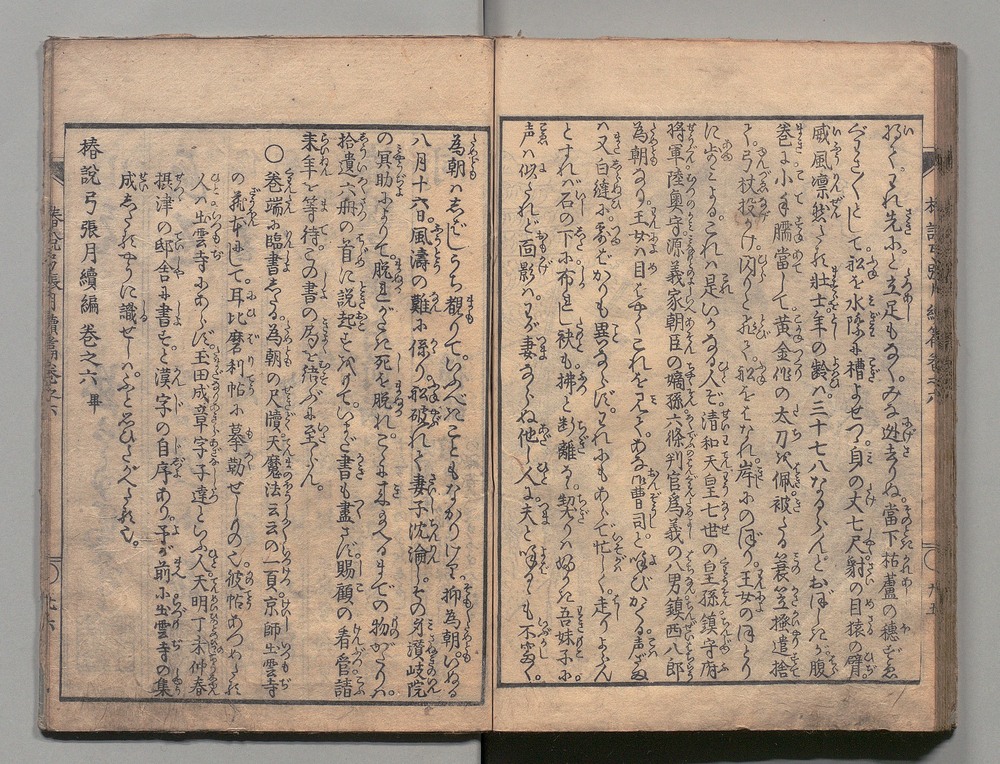 招く。われ先にと立足もなく。みな迯去りぬ。當下枯蘆の穂ずゑ
ぐさ〳〵として舩を水際に槽よせつ。身の丈七尺豺の目猿の臂。
威風凛然たれ壮士年の齢ハ三十七八なるらんとおぼしきが。腹
巻に小手臑當して。黄金作の太刀を佩。被たる簑笠掻遣捨
弓杖投かけ。閃りと飛て舩をはなれ。岸にのぼり。王女のほとり
に歩よる。これハ是いかなる人ぞ。清和天皇七世の皇孫鎮守府
将軍陸奥守源義家朝臣の嫡孫六條判官爲義の八男鎮西八郎
為朝なり。王女ハ目はやくこれを見て。あな御曹司と呼びかくる声
ハ又白縫に露ばかりも異ならず。われにもあらで忙しく。走りよらん
とすれバ石の下に布れし袂も拂と断離る。契りハ好か吾妹子に。
声ハ似たれど面影ハ。わが妻ならぬ他し人。夫と呼るゝも不審く。
為朝ハしばしうち観りて。いふべきこともなかりけり。抑為朝いぬる
八月十六日風濤の難に係り。舩破れて妻子沈淪し。その身讃岐院
の冥助によりて脱れがたき死を脱れ。こゝに来るまでの物がたりハ。
拾遺六册の首に説起すべけれバ。いまだ書も盡さず。賜顧の看官請
来年を等待。この書の局を結ぶに至らん。
〇巻端に臨書する。為朝の尺牘天魔法云云の一頁。京師出雲寺
の蔵本にして。耳比磨利帖に摹勒せしもの也。彼帖あつめたる
人ハ出雲寺にあらず。玉田成章字子達といふ人。天明丁未仲春
摂津の邸舎に書すと漢字の自序あり。予が前に出雲寺の集
成したれるやうに識せしハ。ふと思ひたがへたれバ也。
椿說弓張月續編巻之六畢
椿說弓張月續編巻之六
廿六
廿五